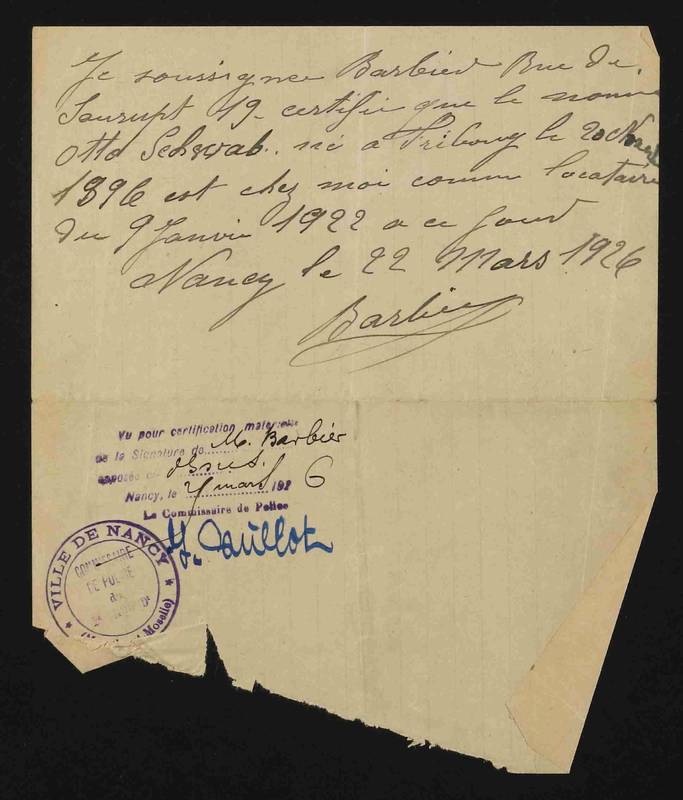 Je soussigné Barbier Rue de
Saurupt 19 certifie que le nommé
Otto Schwab né a Fribourg le 20
1896 est chez moi comme locataire
du 9 Janvie 1922 a ce jour
Nancy le 22 Mars 1926
Barbier
Vu pour certification matérielle
de la Signature de M. Barbier
apposée
Nancy, le mars 192 6
Le Commissaire de Police
VILLE DE NANCY
COMMISSAIRE
DE POLICE
Moselle)